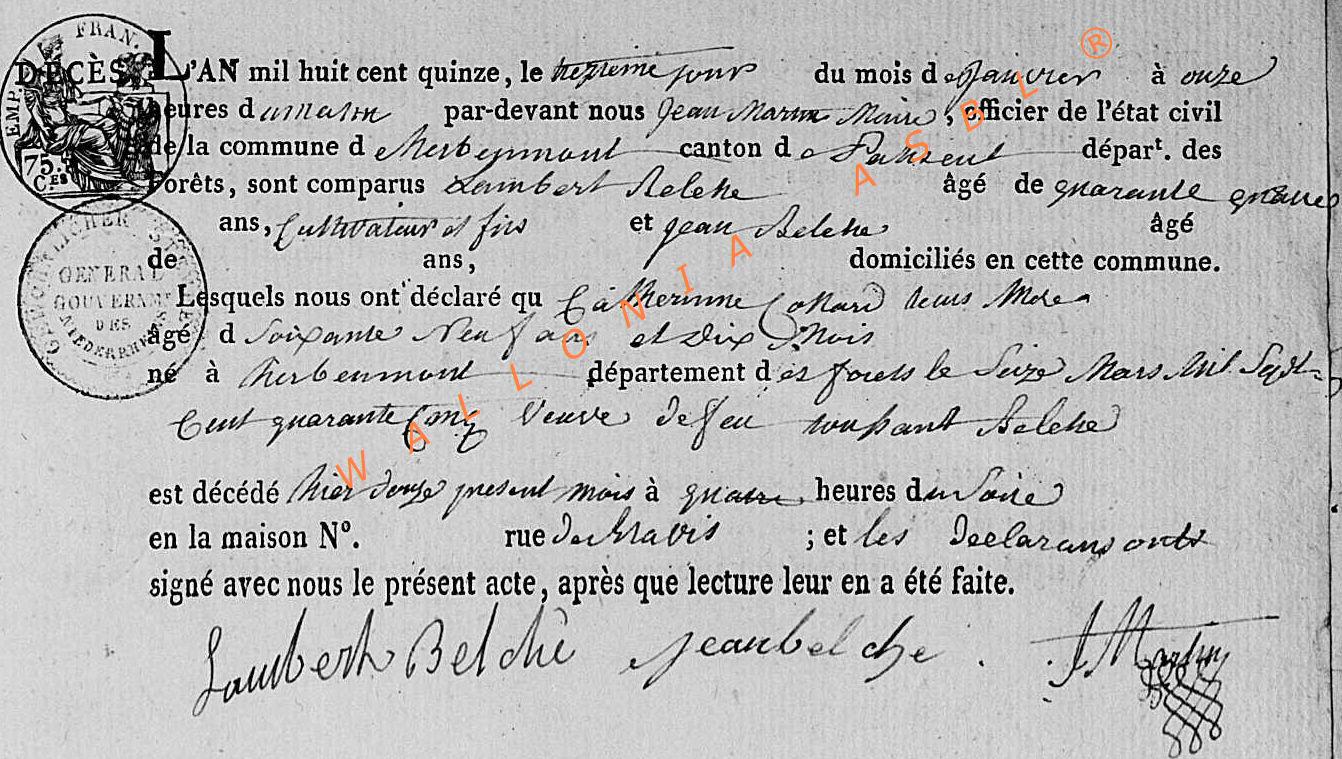 FRAN.
EMP.
75.
C.ES
DÉCÈS
L'AN mil huit cent quinze, le treizieme jour du mois de Janvier à onze
heures du matin par-devant nous Jean Martin Maire, officier de l'état civil
de la commune d herbeumont canton de Paliseul départ. des
Forêts, sont comparus Lambert Belche âgé de quarante quatre
ans, Cultivateur et fils et jean Belche âgé
de ans, domiciliés en cette commune.
GENERAL
GOUVERNMT
DES
NIEDERRHEINS
Lesquels nous ont déclaré qu Catherinne Collard leurs Mere
âgé d Soixante Neuf ans et Dix Mois
né à herbeumont département des forets le Seize Mars Mil Sept
Cent quarante Cinq Veuve de feu toussant Belche
est décédé hier douze present mois à quatre heures du Soire
en la maison N°. rue ; et les Declarans onts
signé avec nous le présent acte, après que lecture leur en a été faite.
Lambert Belché jean belche J Martin
WALLONIA ASBL ®